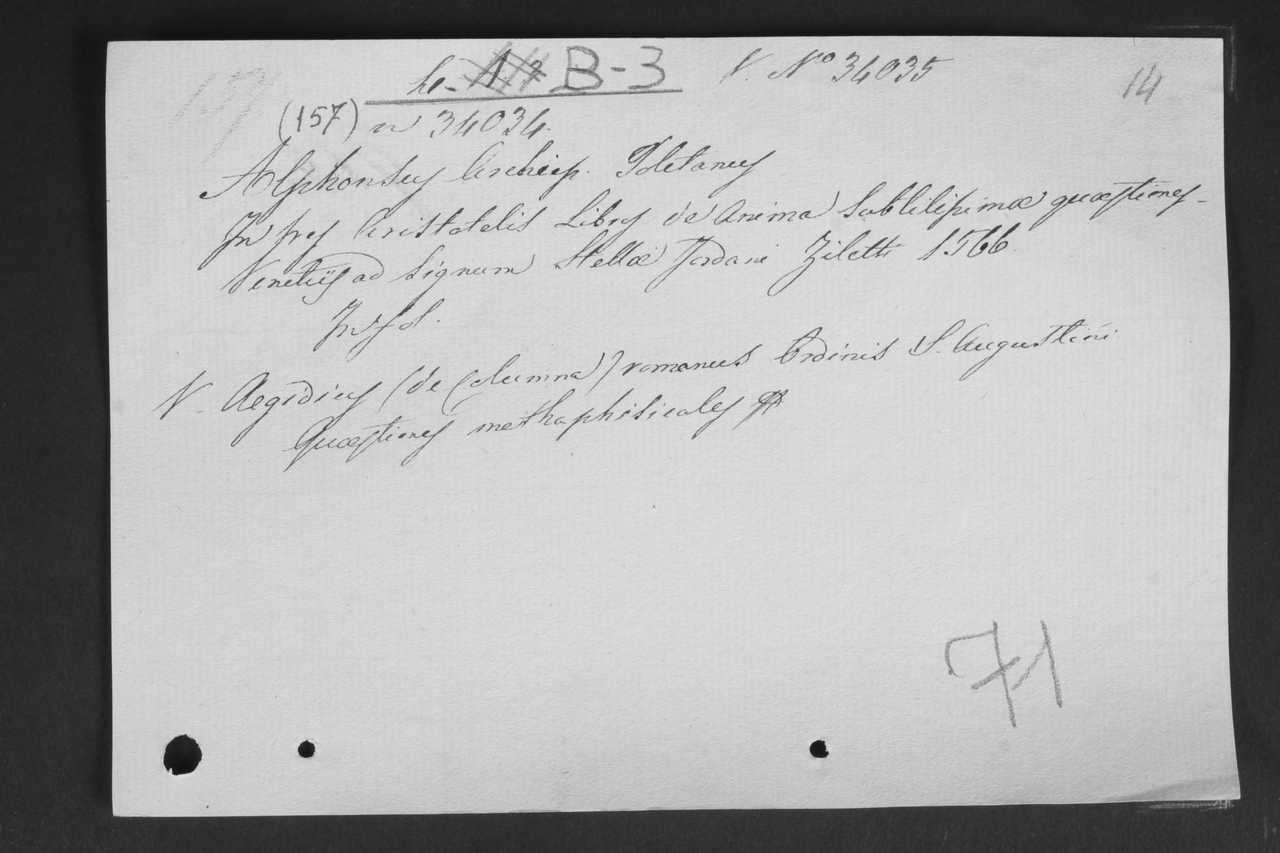 B-3 V. Nº 34035 14
157
(157) n 34034.
Alphonsus Archiep. Toletanus
In tres Aristotelis Libros de Anima Subtilissimæ quæstiones-
Venetiis ad Signum Stellæ Jordani Ziletti 1566.
In fol.
V. Aegidius (de Columna) romanus Ordinis S. Augustini
Quæstiones methaphisicales
71